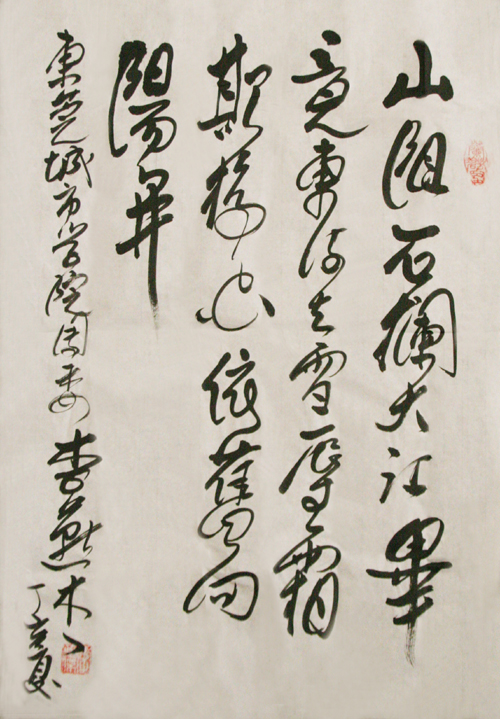 山阻石攔大江畢
竟東流去雪辱霜
欺梅花依舊向
陽開
東莞城市学院团委 李燕杰
丁亥夏